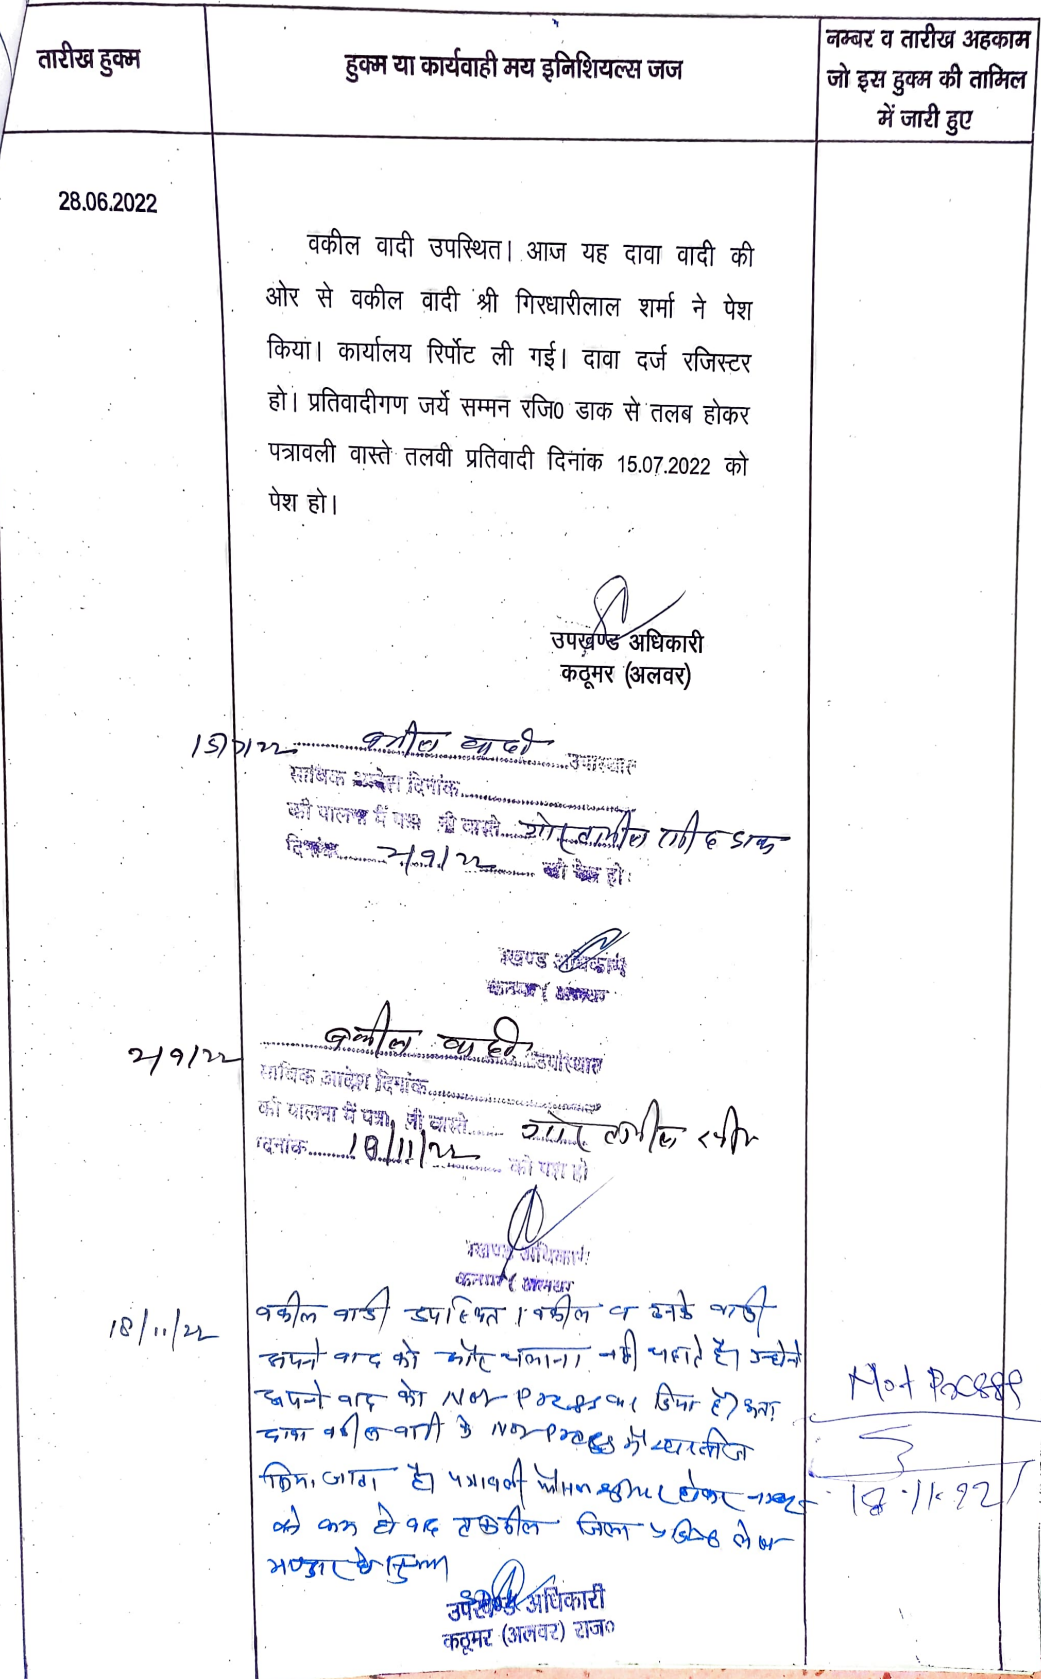 तारीख हुक्म
हुक्म या कार्यवाही मय इनिशियल्स जज
नम्बर व तारीख अहकाम
जो इस हुक्म की तामिल
में जारी हुए
28.06.2022
वकील वादी उपस्थित। आज यह दावा वादी की
ओर से वकील वादी श्री गिरधारीलाल शर्मा ने पेश
किया। कार्यालय रिर्पोट ली गई। दावा दर्ज रजिस्टर
हो। प्रतिवादीगण जर्ये सम्मन रजि0 डाक से तलब होकर
पत्रावली वास्ते तलवी प्रतिवादी दिनांक 15.07.2022 को
पेश हो।
उपखण्ड अधिकारी
कठूमर (अलवर)
15/7/22 वकील वादी उपस्थित
साबिक आदेश दिनांक
की पालना में पत्रा ली वास्ते डाक
दिनांक 2/9/22 को पेश हो।
खण्ड अधिकारी
2/9/22 वकील वादी उपस्थित
साबिक आदेश दिनांक
की पालना में पत्रा ली वास्ते
दिनांक 18/11/22 को पेश हो
खण्ड अधिकारी
18/11/22 वकील वादी उपस्थित। वकील व उनके वादी
अपने वाद को चलाना नही चहाते है। उन्होने
अपने वाद को Not Press कर दिया है।
वकील वादी के Not Press में
किया जाता है। पत्रावली होकर
जिला लेख
उपखण्ड अधिकारी
कठूमर (अलवर) राज०
Not Press
18.11.22